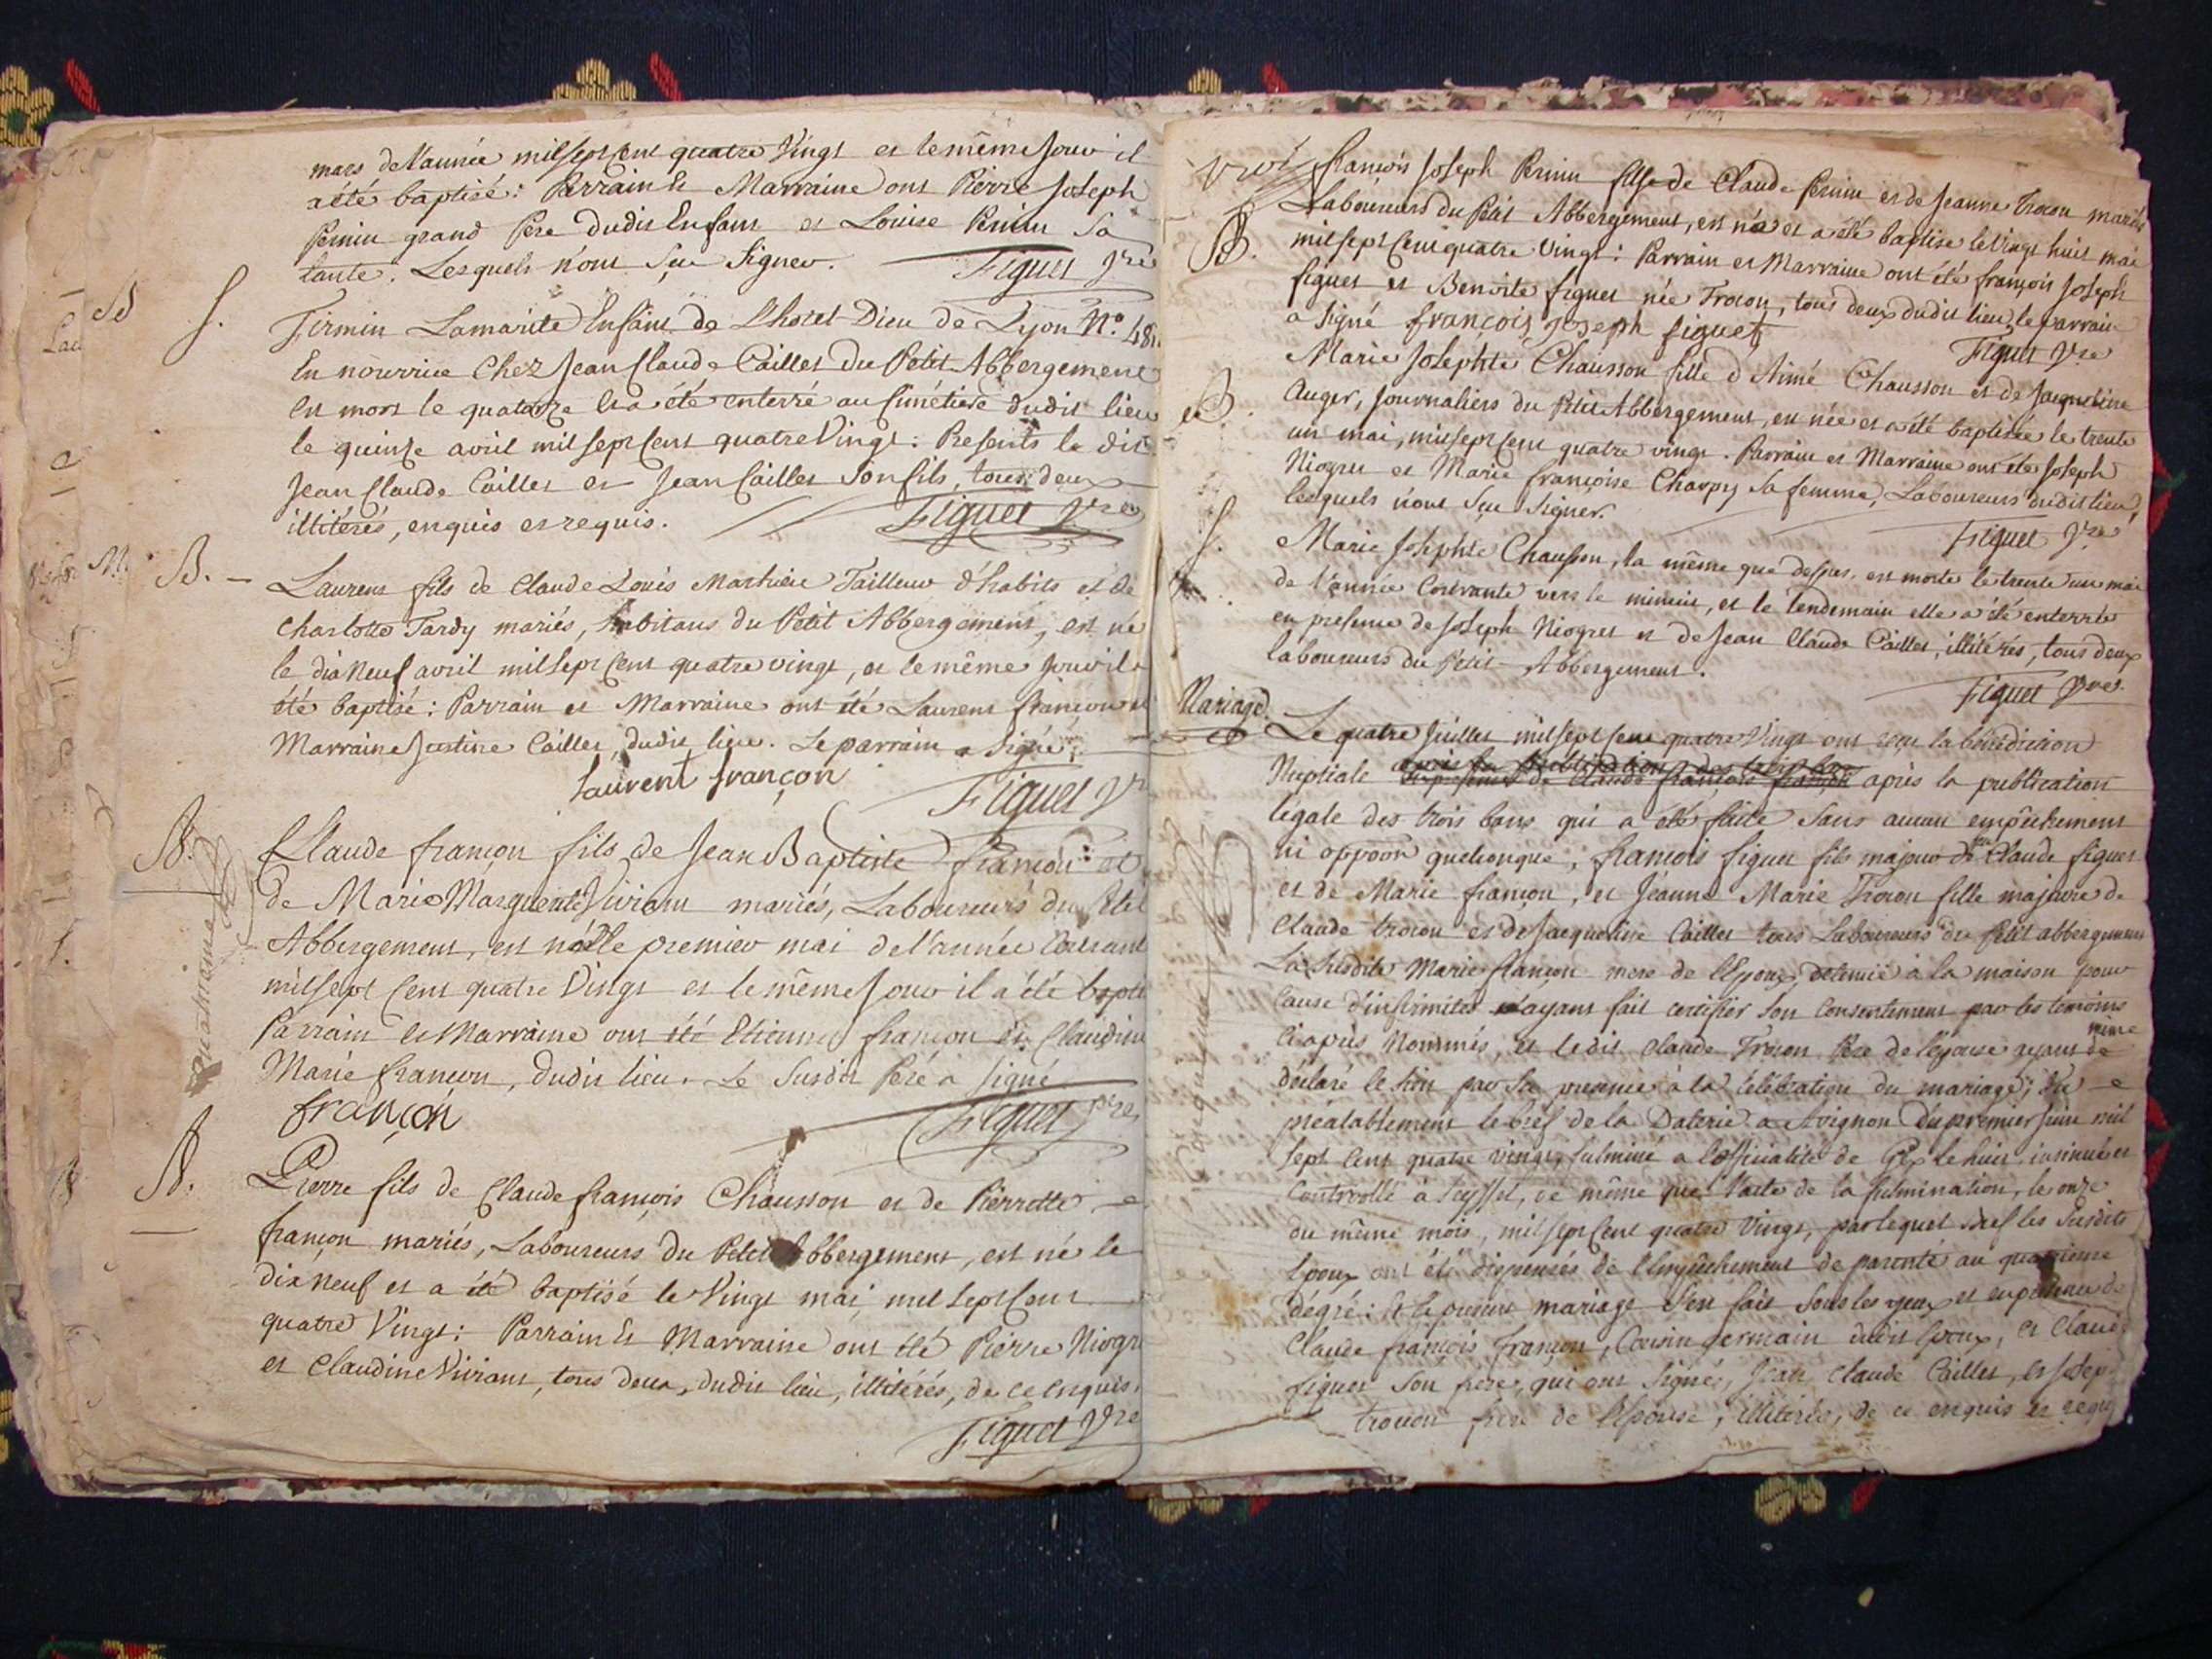 mars de l'année mil sept cent quatre Vingt et le même Jour il
a été baptisé: Parrain Et Marraine ont Pierre Joseph
Pernin grand Pere dudit Enfant et Louise Pernin Sa
tante. Lesquels n'ont Sçu Signer. Figuet Vre
B S. Firmin Enfant de L'hotel-Dieu de Lyon N.o
En nourrice Chez Jean Claude Caillet du Petit Abbergement
est mort le quatorze Et a été enterré au Cimétière dudit lieu
le quinze avril mil sept cent quatre Vingt: Presents le dit
Jean Claude Caillet et Jean Caillet Son fils, tous deux
illitérés, enquis et requis. Figuet Vre
M. B. Laurent fils de Claude Louis Tailleur d'habits et de
Charlotte Tardy mariés, habitans du Petit Abbergement, est né
le dix neuf avril mil sept cent quatre vingt, et le même jour il a
été baptisé: Parrain et Marraine ont été Laurent françon et
Marraine Justine Caillet, dudit lieu. Le parrain a Signé.
laurent françon Figuet Vr
B. Claude françon fils de Jean Baptiste françon et
de Marie Marguerite Vivient mariés, Laboureurs du Petit
Abbergement, est né le premier mai de l'année Courant
mil sept Cent quatre Vingt et le même Jour il a été bapti
Parrain et Marraine ont été Etienne françon et Claudine
Marie françon, dudit lieu. Le Susdit Peré a Signé
françon Figuet Vre
B. Pierre fils de Claude françois Chausson et de Pierrette
françon mariés, Laboureurs du Petit Abbergement, est né le
dix neuf et a été baptisé le Vingt mai mil Sept Cent
quatre Vingt: Parrain Et Marraine ont été Pierre Niogr
et Claudine Vivient, tous deux, dudit lieu, illitérés, de ce enquis.
Figuet Vre
françois Joseph Pernin fils de Claude Pernin et de Jeanne Trocon mariés
Laboureurs du Petit Abbergement, est né et a été baptisé le Vingt huit mai
B. mil sept Cent quatre Vingt: Parrain et Marraine ont été françois Joseph
figuet et Benoite figuet née Trocon, tous deux dudit lieu, le parrain
a Signé françois joseph figuet Figuet Vre
B. Marie Josephte Chausson fille d'Aimé Chausson et de Jacqueline
Auger, Journaliers du Petit Abbergement, est née et a été baptisée le trente
un mai, mil sept cent quatre vingt. Parrain et Marraine ont été Joseph
Niogret et Marie françoise Charpy Sa femme, Laboureurs dudit lieu,
lesquels n'ont Sçu Signer. Figuet Vre
S. Marie Josephte Chausson, la même que dessus, est morte le trente un mai
de l'année Courante vers le minuit, et le lendemain elle a été enterrée
en presence de Joseph Niogret et de Jean Claude Caillet, illitérés, tous deux
laboureurs du Petit-Abbergement. Figuet Vre
Mariage. Le quatre Juillet mil sept cent quatre Vingt ont reçu la bénédiction
Nuptiale après la publication
légale des trois bans qui a été faite Sans aucun empêchement
ni oppôon quelconque, françois figuet fils majeur de Claude figuet
et de Marie françon, et Jéanne Marie Trocon fille majeure de
Claude trocon et de Jacqueline Caillet tous Laboureurs du Petit abbergement
La Susdite Marie françon mere de l'Epoux, détenuë à la maison pour
cause d'infirmités ayant fait certifier Son Consentement par les temoins
ci après Nommés, et ledit Claude Trocon Pere de l'epouse ayant
déclaré le Sien par Sa presence à la Celébration du mariage; Vû
préalablement le bref de la Daterie d'Avignon du premier Juin mil
sept Cent quatre vingt, fulminé a l'officialité de Gex le huit, insinué et
Controllé à Seyssel, de même que l'acte de la fulmination, le onze
du même mois, mil sept Cent quatre Vingt, par lequel bref les Susdits
Epoux ont été dispensés de l'Empêchement de parenté au quatrieme
dégré: Et le present mariage S'est fait Sous les yeux et en presence de
Claude françois françon, Cousin germain dudit Epoux, et Claude
figuet Son frere, qui ont Signés, Jean Claude Caillet, et Josep
trocon frere de l'Epouse, illitérés, de ce enquis et requi